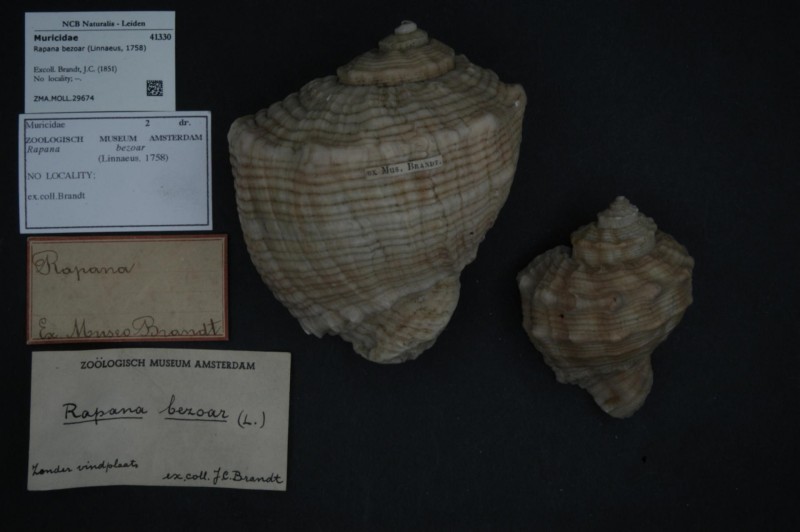 NCB Naturalis - Leiden
Muricidae 41330
Rapana bezoar (Linnaeus, 1758)
Excoll. Brandt, J.C. (1851)
No locality; --.
ZMA.MOLL.29674
Muricidae 2 dr.
ZOOLOGISCH MUSEUM AMSTERDAM
Rapana bezoar
(Linnaeus, 1758)
NO LOCALITY;
ex.coll.Brandt
Rapana
Ex Museo Brandt
ZOÖLOGISCH MUSEUM AMSTERDAM
Rapana bezoar (L.)
Zonder vindplaats
ex. coll. J.C. Brandt
ex Mus. Brandt.